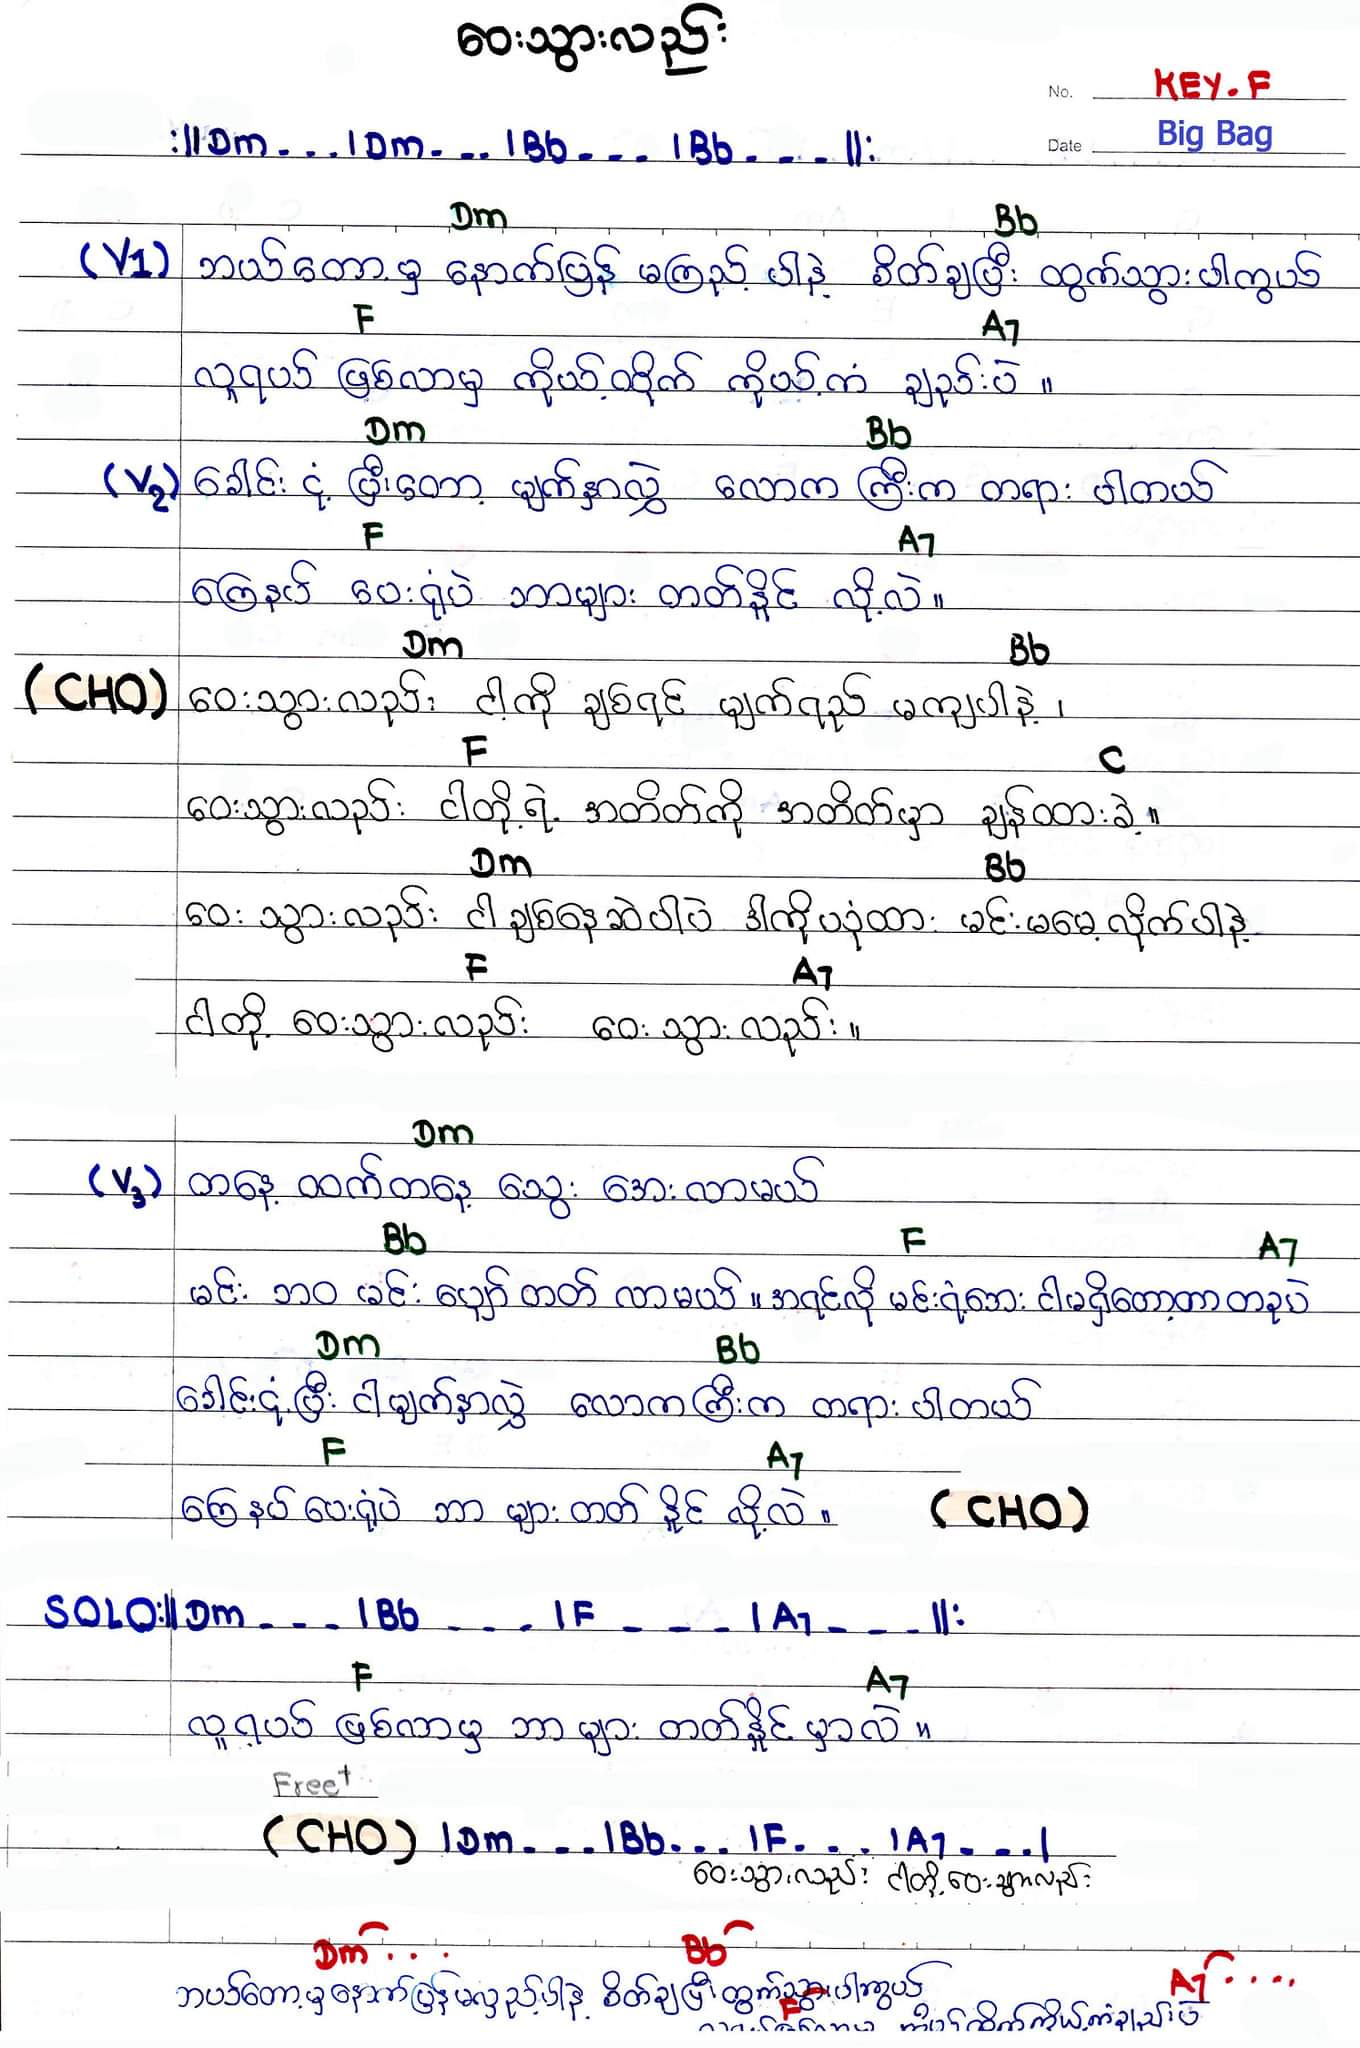 ဝေးသွားလည်း
No. KEY.F
Date Big Bag
:||Dm - - - |Dm - - - |Bb - - - |Bb - - - - ||:
Dm Bb
(V1) ဘယ်တော့မှ နောက်ပြန် မကြည့် ပါနဲ့ စိတ်ချပြီး ထွက်သွားပါကွယ်
F A7
လူရယ် ဖြစ်လာမှ ကိုယ့်ထိုက် ကိုယ့်ကံ ချည်းပဲ ။
Dm Bb
(V2) ခေါင်း ငုံ့ ပြီးတော့ မျက်နှာလွှဲ လောက ကြီးက တရား ပါတယ်
F A7
ကြေနပ် ပေးရုံပဲ ဘာများ တတ်နိုင် လို့လဲ ။
Dm Bb
(CHO) ဝေးသွားလည်း ငါ့ကို ချစ်ရင် မျက်ရည် မကျပါနဲ့ ၊
F C
ဝေးသွားလည်း ငါတို့ရဲ့ အတိတ်ကို အတိတ်မှာ ချန်ထားခဲ့ ။
Dm Bb
ဝေး သွားလည်း ငါ ချစ်နေဆဲပါပဲ ဒါကိုယုံထား မင်းမမေ့လိုက်ပါနဲ့
F A7
ငါတို့ ဝေးသွားလည်း ဝေး သွားလည်း ။
Dm
(V3) တနေ့ ထက်တနေ့ သွေး အေးလာမယ်
Bb F A7
မင်း ဘဝ မင်း ပျော် တတ် လာမယ် ။ အရင်လို မင်းရဲ့ဘေး ငါမရှိတော့တာ တခုပဲ
Dm Bb
ခေါင်းငုံ့ပြီး ငါ မျက်နှာလွှဲ လောကကြီးက တရား ပါတယ်
F A7
ကြေ နပ် ပေးရုံပဲ ဘာ များ တတ် နိုင် လို့လဲ ။ (CHO)
SOLO:||Dm - - - |Bb - - - - |F - - - |A7 - - - ||:
F A7
လူရယ် ဖြစ်လာမှ ဘာ များ တတ်နိုင် မှာလဲ ။
Free†
(CHO) |Dm - - - |Bb - - - |F - - - |A7 - - - |
ဝေးသွားလည်း ငါတို့ ဝေးသွားလည်း
Dm . . . Bb A7 . . . .
ဘယ်တော့မှ နောက်ပြန်မလှည့်ပါနဲ့ စိတ်ချပြီးထွက်သွားပါကွယ်
F
လူရယ်ဖြစ်လာမှ ကိုယ့်ထိုက်ကိုယ့်ကံချည်းပဲ